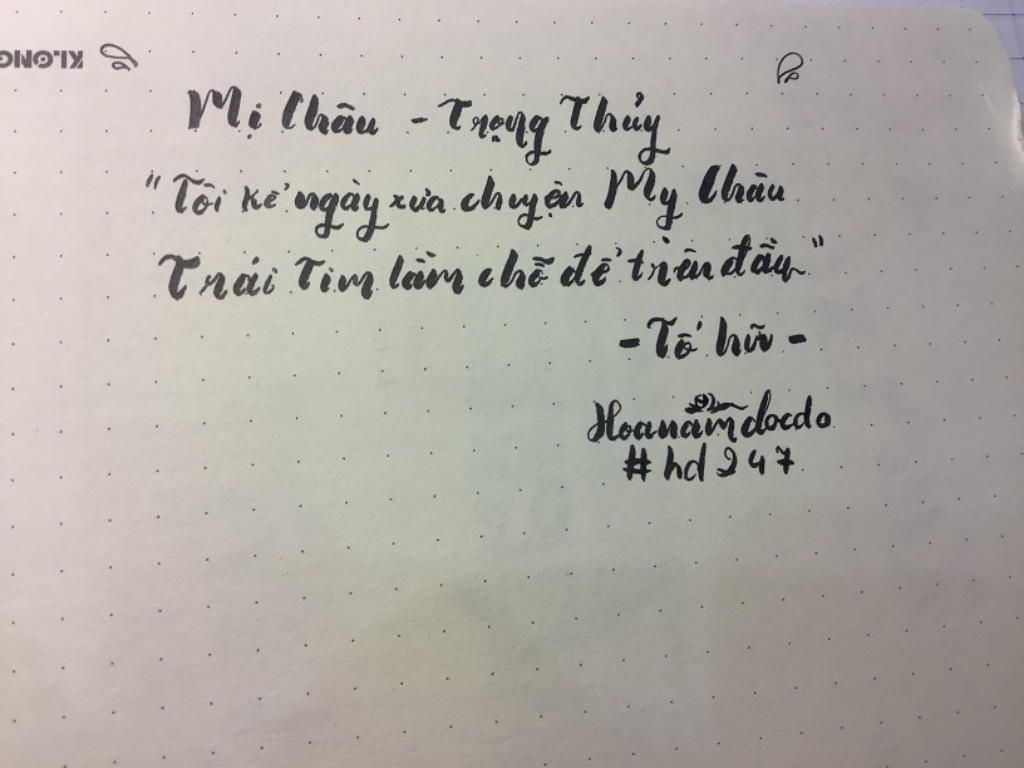 KLONG
Mị Châu - Trọng Thủy
"Tôi kể ngày xưa chuyện Mỵ Châu
Trái Tim lầm chỗ để trên đầu"
- Tố hữu -
Hoanấmdocdo
#hd247